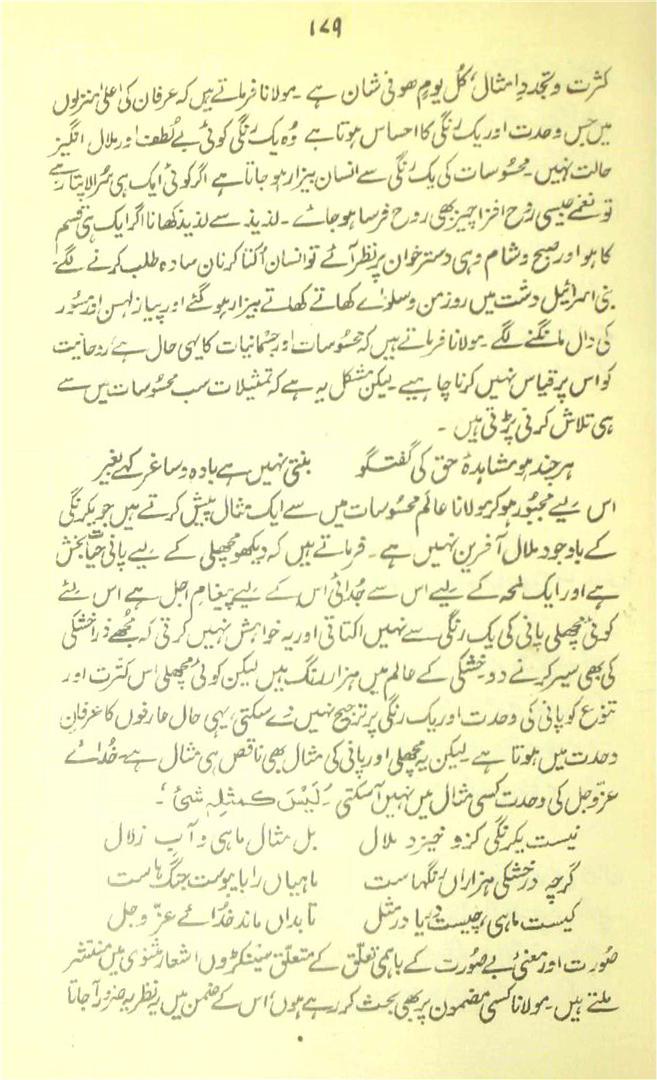 ۱۷۹
کثرت و تجددِ امثال ’کُل یومٍ ھو فی شان ہے ۔ مولانا فرماتے ہیں کہ عرفان کی اعلیٰ منزلوں
میں جس وحدت اور یک رنگی کا احساس ہوتا ہے وُہ یک رنگی کوئی بے لُطف اور ملال انگیز
حالت نہیں ۔ محسوسات کی یک رنگی سے انسان بیزار ہو جاتا ہے اگر کوئی ایک ہی سُر الاپتا رہے
تو نغمے جیسی رُوح افزا چیز بھی روح فرسا ہو جائے ۔ لذیذ سے لذیذ کھانا اگر ایک ہی قسم
کا ہو اور صبح و شام وہی دسترخوان پر نظر آئے تو انسان اُکتا کر نان سادہ طلب کرنے لگے
بنی اسرائیل دشت میں روز من و سلوےٰ کھاتے کھاتے بیزار ہو گئے اور پیاز لہسن اور مسُور
کی دال مانگنے لگے ۔ مولانا فرماتے ہیں کہ محسوسات اور جسمانیات کا یہی حال ہے ، روحانیت
کو اس پر قیاس نہیں کرنا چاہیے ۔ لیکن مشکل یہ ہے کہ تمثیلات سب محسوسات میں سے
ہی تلاش کرنی پڑتی ہیں ۔
ہر چند ہو مشاہدۂ حق کی گفتگو بنتی نہیں ہے بادہ و ساغر کہے بغیر
اس لیے مجبُور ہو کر مولانا عالمِ محسوسات میں سے ایک مثال پیش کرتے ہیں جو یکرنگی
کے باوجود ملال آفرین نہیں ہے ۔ فرماتے ہیں کہ دیکھو مچھلی کے لیے پانی حیات بخش
ہے اور ایک لمحہ کے لیے اس سے جُدائی اُس کے لیے پیغامِ اجل ہے اس لئے
کوئی مچھلی پانی کی یک رنگی سے نہیں اکتاتی اور یہ خواہش نہیں کرتی کہ مجُھے ذرا خشکی
کی بھی سیر کرنے دو ۔ خشکی کے عالم میں ہزار رنگ ہیں لیکن کوئی مچھلی اُس کثرت اور
تنوّع کو پانی کی وحدت اور یک رنگی پر ترجیح نہیں دے سکتی ، یہی حال عارفوں کا عرفانِ
وحدت میں ہوتا ہے ۔ لیکن یہ مچھلی اور پانی کی مثال بھی ناقص ہی مثال ہے ۔ خدائے
عزّ و جل کی وحدت کسی مثال میں نہیں آ سکتی ۔ ’لَیْسَ کَمثلِہٖ شئ‘ ۔
نیست یکرنگی کزو خیزد ملال بل مثال ماہی و آبِ زلال
گرچہ در خشکی ہزاراں رنگہاست ماہیاں را با یبوست جنگ ہاست
کیست ماہی ، چیست دریا در مثل تا بداں ماند خدائے عزّ و جل
صُورت اور معنئ بے صُورت کے باہمی تعلق کے متعلق سینکڑوں اشعار مثنوی میں منتشر
ملتے ہیں ۔ مولانا کسی مضمون پر بھی بحث کر رہے ہوں ، اس کے ضمن میں یہ نظریہ ضرور آ جاتا